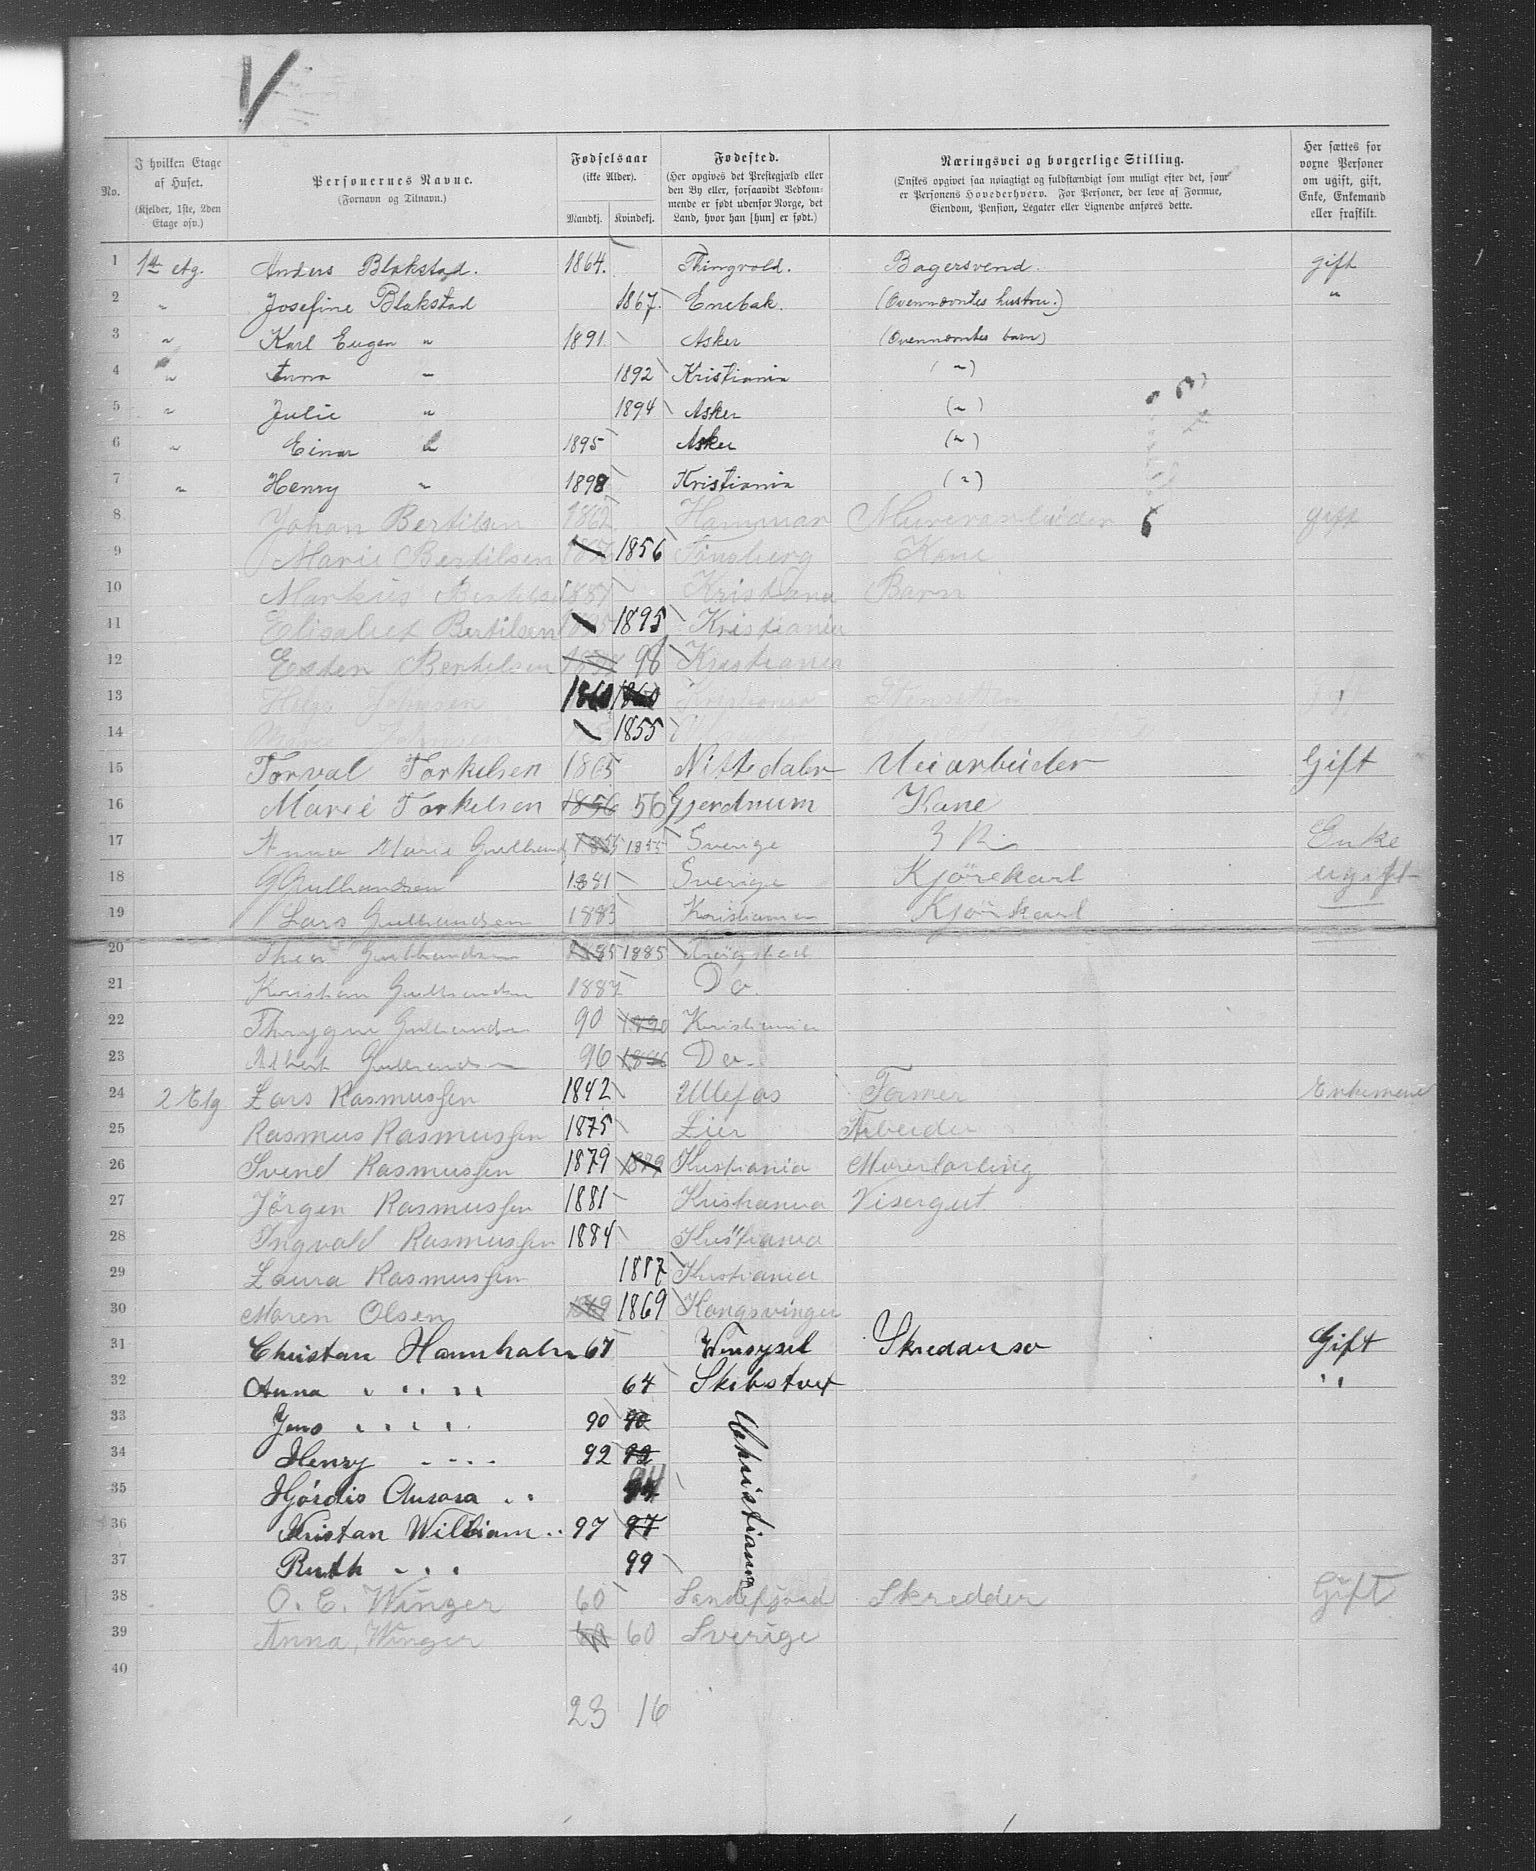 V
No.
I hvilken Etage af Huset. (Kjelder, 1ste, 2den Etage osv.)
Personernes Navne. (Fornavn og Tilnavn.)
Fødselsaar (ikke Alder). Mandkj. Kvindekj.
Fødested. (Her opgives det Prestegjæld eller den By eller, forsaavidt Vedkommende er født udenfor Norge, det Land, hvor han [hun] er født.)
Næringsvei og borgerlige Stilling. (Ønskes opgivet saa nøiagtigt og fuldstændigt som muligt efter det, som er Personens Hovederhverv. For Personer, der leve af Formue, Eiendom, Pension, Legater eller Lignende anføres dette.
Her sættes for voxne Personer om ugift, gift, Enke, Enkemand eller fraskilt.
1 1ste Etg. Anders Blakstad. 1864. Thingvold. Bagersvend. gift
2 " Josefine Blakstad 1867. Enebak. (Ovennævntes hustru.) "
3 " Karl Eugen " 1891 Asker (Ovennævntes barn)
4 " Anna " 1892 Kristiania (")
5 " Julie " 1894 Asker (")
6 " Einar " 1895 Asker (")
7 " Henry " 1898 Kristiania (")
8 Johan Bertilsen 1862 Hammar Murerarbeider gift
9 Marie Bertilsen 1856 Tönsberg Kone
10 Markus Bertilsen 1887 Kristiania Barn
11 Elisabet Bertilsen 1895 Kristiania
12 Bertilsen 98 Kristiania
13 1860 1860 Kristiania
14 1855
15 Torval Torkelsen 1865 Nittedalen Veiarbeider Gift
16 Marie Torkelsen 1856 56 Gjerdrum Kone
17 Anna Marie Gulbrandsen 1855 1855 Sverige Enke
18 G Gulbrandsen 1881 Sverige Kjörekarl ugift
19 Lars Gulbrandsen 1883 Kristiania Kjörkarl
20 Thea Gulbrandsen 1885 1885 Kraagstad
21 Kristian Gulbrandsen 1887 Do.
22 Thrygve Gulbrandsen 90 1890 Kristiania
23 Albert Gulbrandsen 96 1896 Do.
24 2 Etg Lars Rasmussen 1842 Ullefos Former Enkemand
25 Rasmus Rasmussen 1875 Lier Arbeider
26 Svend Rasmussen 1879 1879 Kristiania Murerlærling
27 Jörgen Rasmussen 1881 Kristiania Visergut
28 Ingvald Rasmussen 1884 Kristiania
29 Laura Rasmussen 1887 Kristiania
30 Maren Olsen 1869 1869 Kongsvinger
31 Christan Hannholm 67 Vensysel Skreddersv Gift
32 Anna " " " " 64 Skibstvet " "
33 Jens " " " " 90 90 Christiania
34 Henry " " " " 92 92
35 Hjördis Aurora " " 94
36 Kristan William " " 97 97
37 Ruth " " " 99
38 O. E. Winger 60 Sandefjord Skredder Gift
39 Anna Winger 60 60 Sverige
40
23 16